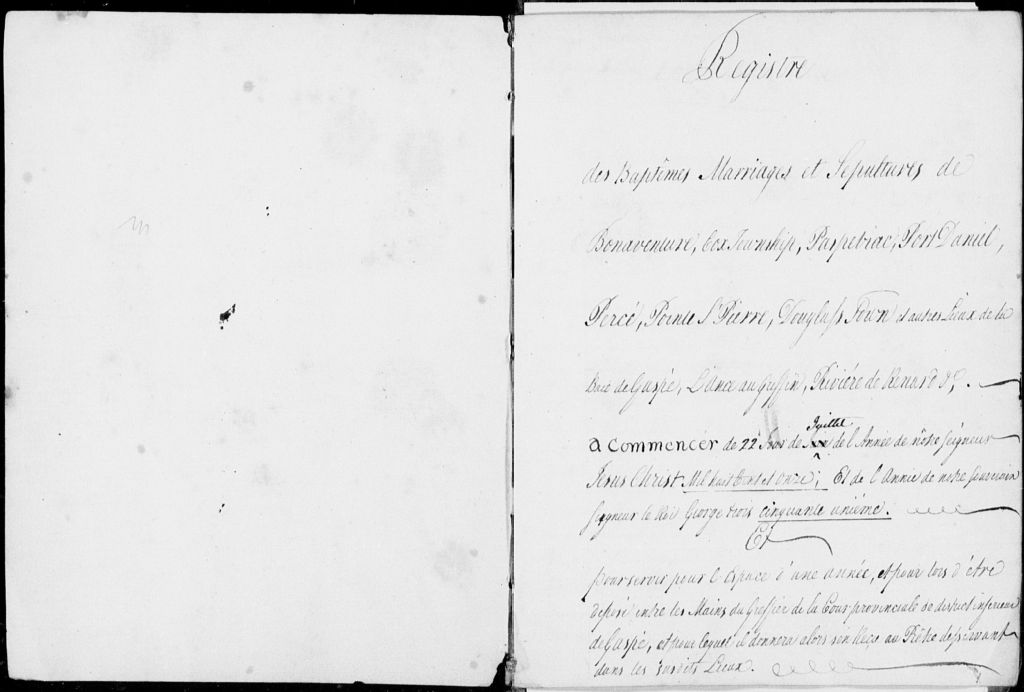 Registre
des Baptêmes Marriages et Sepultures de
Bonaventure, Cox Township, Paspebiac, Port Daniel,
Percé, Pointe St Pierre, Douglass Town et autres Lieux de la
Baie de Gaspé, L'Ance au Griffin, Riviére de Renard &c.
a commencer de 22e Jour de Juillet de l'Année de nôtre Seigneur
Jesus Christ Mil huit Cent et onze; Et de l'Année de notre Souverain
Seigneur le Roi George trois cinquante unième.
Et
pour servir pour l'Espace d'une année, et pour lors d'être
deposé entre les Mains du Greffier de la Cour provinciale de district inferieur
de Gaspé, et pour lequel il donnera alors son Reçu au Prêtre desservant
dans les susdits Lieux.